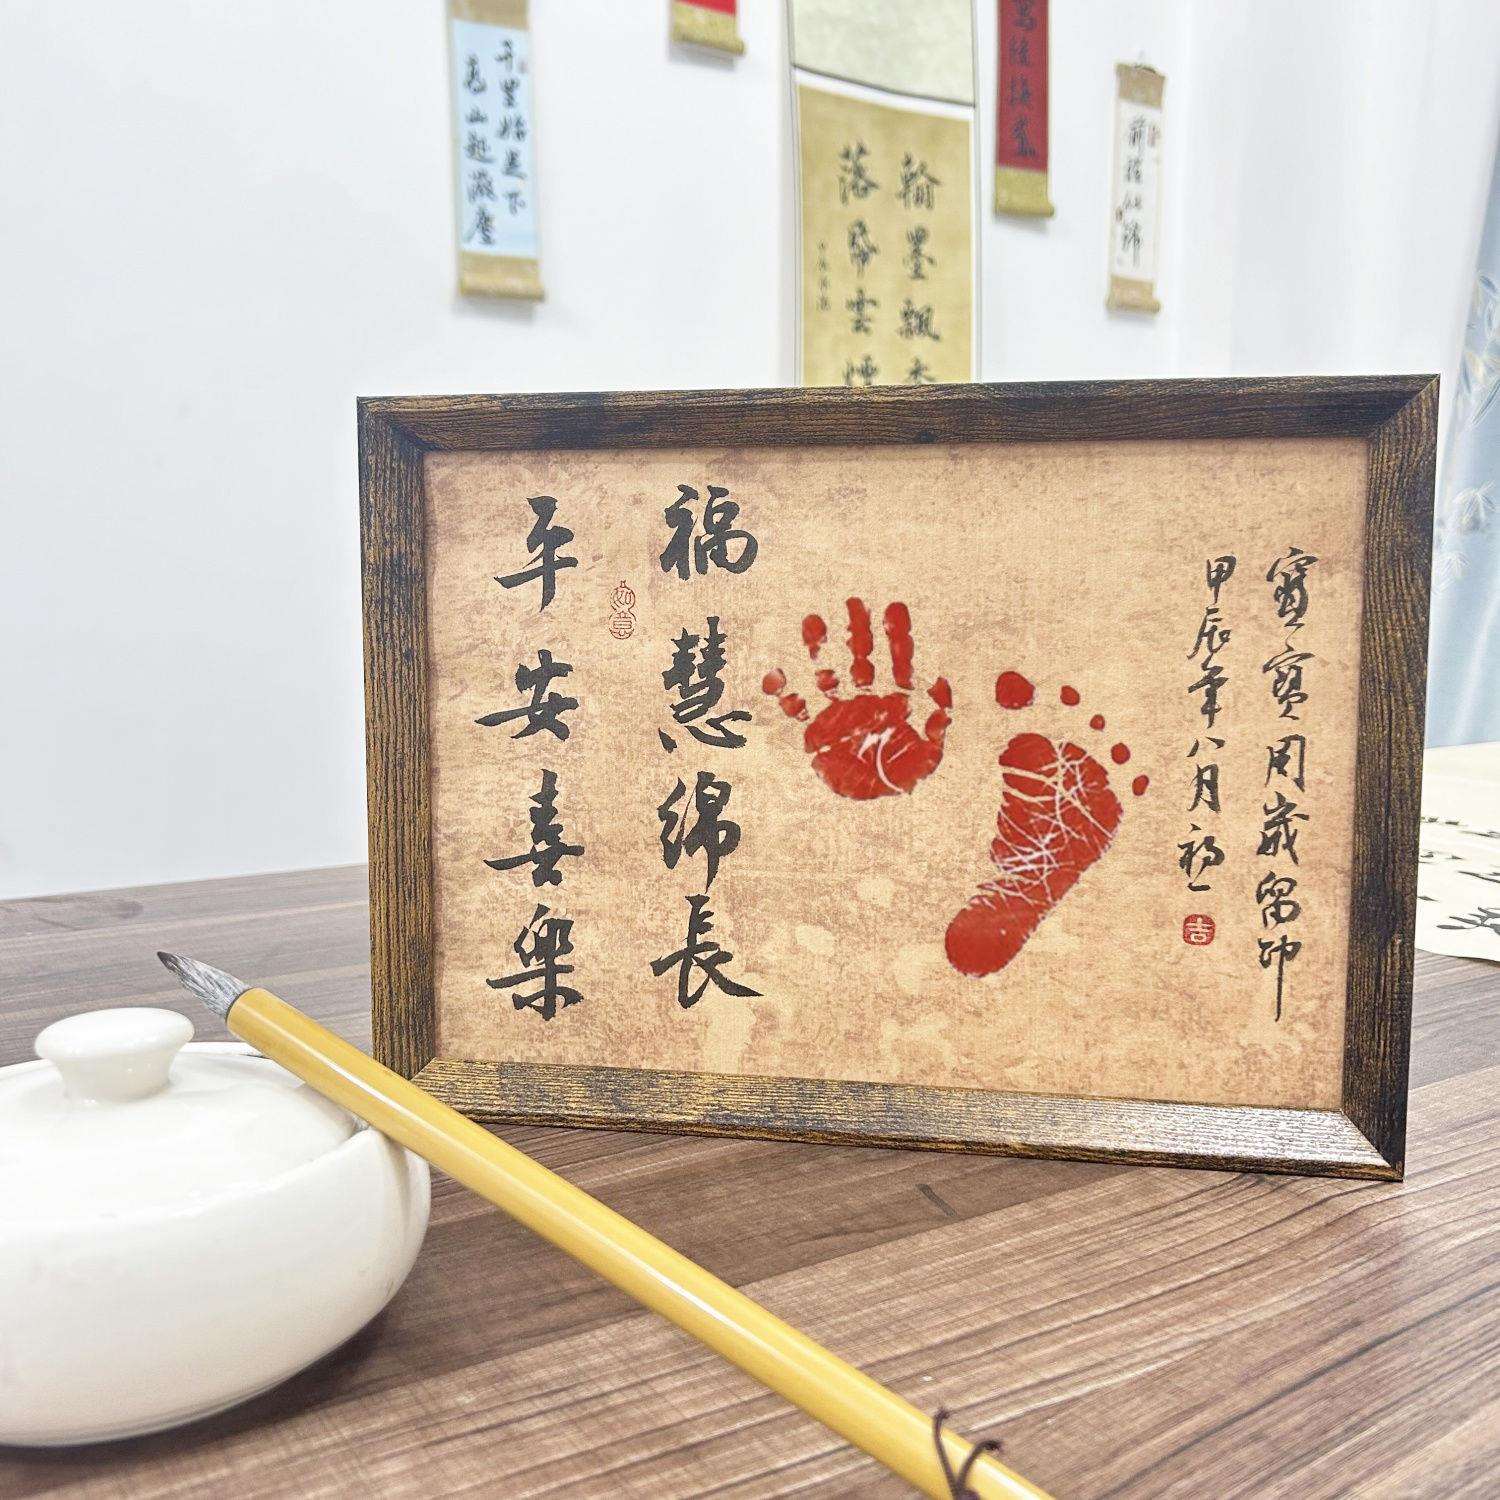 千里始足下
高山起微塵
翰墨飄香
落帋雲煙
前程似锦
寶寶周歲留印
甲辰年八月
吉
福慧綿長
如意
平安喜樂